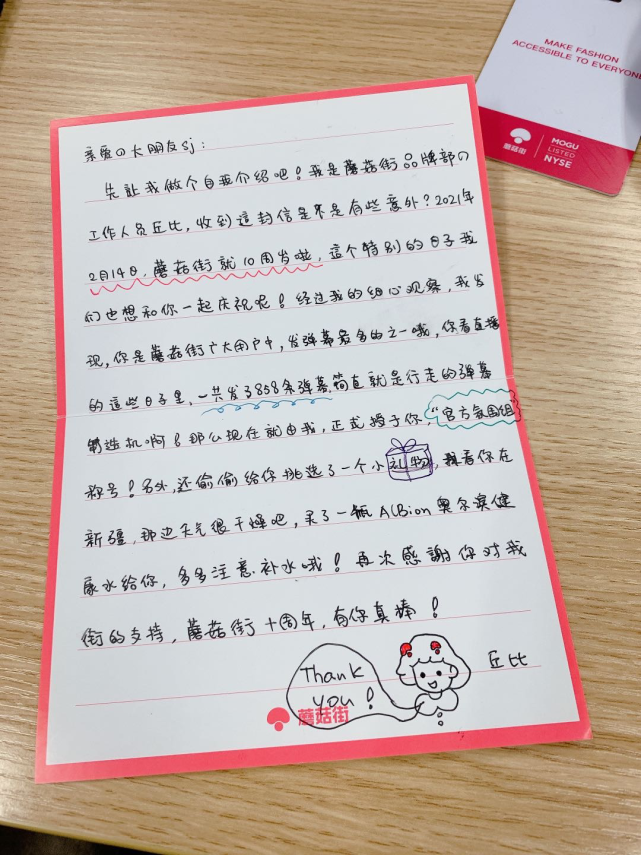 亲爱の大朋友sj:
先让我做个自我介绍吧!我是蘑菇街品牌部の
工作人员丘比,收到這封信是不是有些意外?2021年
2月14日,蘑菇街就10周岁啦,這个特别的日子我
们也想和你一起庆祝呢!经过我的细心观察,我发
现,你是蘑菇街广大用户中,发弹幕最多的之一哦,你看直播
的這些日子里,一共发了858条弹幕,简直就是行走的弹幕
制造机啊!那么现在就由我,正式授予你,“官方氛围组”
称号!另外,还偷偷给你挑选了一个小礼物,看你在
新疆,那边天气很干燥吧,买了一瓶ALBion奥尔滨健
康水给你,多多注意补水哦!再次感謝你对我
街的支持,蘑菇街十周年,有你真棒!
丘比
Thank
you!
蘑菇街
MAKE FASHION
ACCESSIBLE TO EVERYONE
蘑菇街
MOGU
LISTED
NYSE